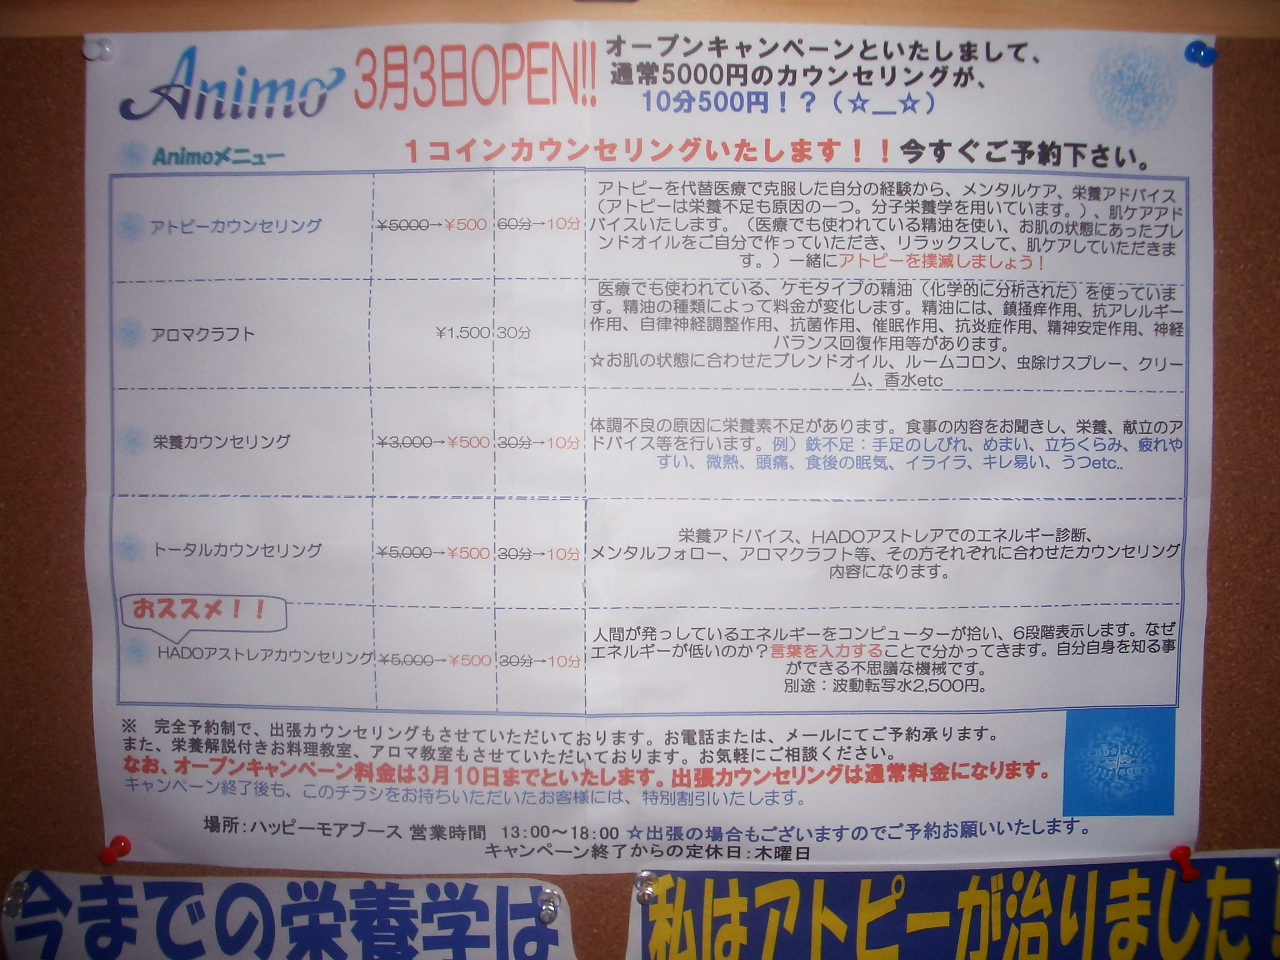 Animo
3月3日OPEN!!
オープンキャンペーンといたしまして、
通常5000円のカウンセリングが、
10分500円！？（☆__☆）
Animoメニュー
１コインカウンセリングいたします！！今すぐご予約下さい。
アトピーカウンセリング
¥5000→¥500
60分→10分
アトピーを代替医療で克服した自分の経験から、メンタルケア、栄養アドバイス
（アトピーは栄養不足も原因の一つ。分子栄養学を用いています。）、肌ケアアド
バイスいたします。（医療でも使われている精油を使い、お肌の状態にあったブレ
ンドオイルをご自分で作っていただき、リラックスして、肌ケアしていただきま
す。）一緒にアトピーを撲滅しましょう！
アロマクラフト
¥1,500
30分
医療でも使われている、ケモタイプの精油（化学的に分析された）を使っていま
す。精油の種類によって料金が変化します。精油には、鎮掻痒作用、抗アレルギー
作用、自律神経調整作用、抗菌作用、催眠作用、抗炎症作用、精神安定作用、神経
バランス回復作用等があります。
☆お肌の状態に合わせたブレンドオイル、ルームコロン、虫除けスプレー、クリー
ム、香水etc
栄養カウンセリング
¥3,000→¥500
30分→10分
体調不良の原因に栄養素不足があります。食事の内容をお聞きし、栄養、献立のア
ドバイス等を行います。例）鉄不足：手足のしびれ、めまい、立ちくらみ、疲れや
すい、微熱、頭痛、食後の眠気、イライラ、キレ易い、うつetc..
トータルカウンセリング
¥5,000→¥500
30分→10分
栄養アドバイス、HADOアストレアでのエネルギー診断、
メンタルフォロー、アロマクラフト等、その方それぞれに合わせたカウンセリング
内容になります。
おススメ！！
HADOアストレアカウンセリング
¥5,000→¥500
30分→10分
人間が発っしているエネルギーをコンピューターが拾い、6段階表示します。なぜ
エネルギーが低いのか？言葉を入力することで分かってきます。自分自身を知る事
ができる不思議な機械です。
別途：波動転写水2,500円。
※　完全予約制で、出張カウンセリングもさせていただいております。お電話または、メールにてご予約承ります。
また、栄養解説付きお料理教室、アロマ教室もさせていただいております。お気軽にご相談ください。
なお、オープンキャンペーン料金は3月10日までといたします。出張カウンセリングは通常料金になります。
キャンペーン終了後も、このチラシをお持ちいただいたお客様には、特別割引いたします。
場所：ハッピーモアブース 営業時間　13:00～18:00 ☆出張の場合もございますのでご予約お願いいたします。
キャンペーン終了からの定休日：木曜日
今までの栄養学は
私はアトピーが治りました！